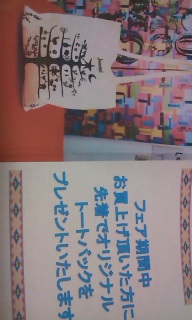 フェア期間中
お買上げ頂いた方に
先着でオリジナル
トートバックを
プレゼントいたします